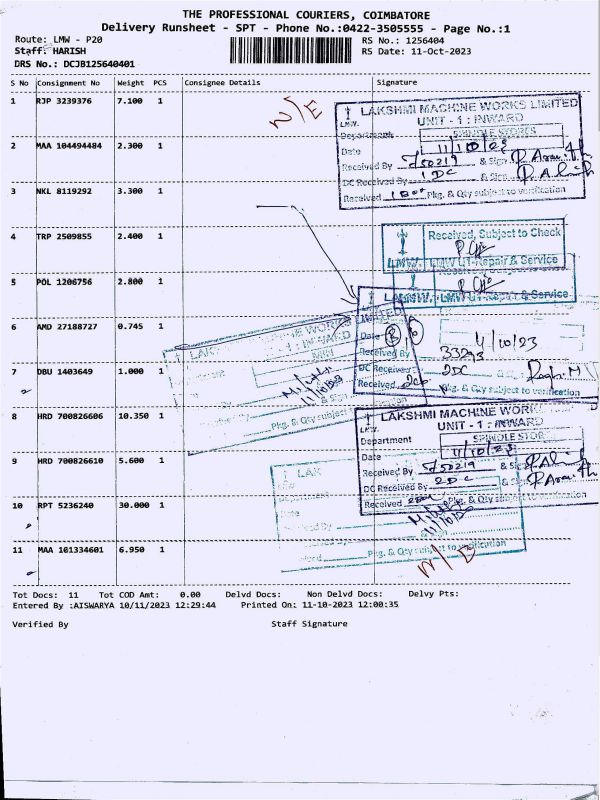 THE PROFESSIONAL COURIERS, COIMBATORE
Delivery Runsheet - SPT - Phone No.:0422-3505555 - Page No.:1
Route: LMW - P20 RS No.: 1256404
Staff: HARISH RS Date: 11-Oct-2023
DRS No.: DCJB125640401
S No Consignment No Weight PCS Consignee Details Signature
1 RJP 3239376 7.100 1
N/E
LAKSHMI MACHINE WORKS LIMITED
LMW. UNIT - 1 : INWARD
Department SPINDLE STORES
2 MAA 104494484 2.300 1
Date 11/10/23
Received By 5/50219 & Sign
DC Received By 1 DC & Sign
3 NKL 8119292 3.300 1
Received 1 Box Pkg. & Qty subject to verification
4 TRP 2509855 2.400 1
Received, Subject to Check
LMW. LMW U1-Repair & Service
5 POL 1206756 2.800 1
LMW. LMW U1-Repair & Service
6 AMD 27188727 0.745 1
LAK WORKS LIMITED
: INWARD
Date 11/10/23
Received By 33293
7 DBU 1403649 1.000 1
DC Received 2DC
Received Pkg. & Qty subject to verification
11/10/23
Pkg. & Qty subject
8 HRD 700826606 10.350 1
LAKSHMI MACHINE WORK
LMW. UNIT - 1 : INWARD
Department SPINDLE STOR
Date 11/10/23
9 HRD 700826610 5.600 1
Received By 5/50219 & Sign
DC Received By 2DC & Sign
LAK
10 RPT 5236240 30.000 1
Received Pkg. & Qty subject to verification
11 MAA 101334601 6.950 1
Pkg. & Qty subject to verification
Tot Docs: 11 Tot COD Amt: 0.00 Delvd Docs: Non Delvd Docs: Delvy Pts:
Entered By :AISWARYA 10/11/2023 12:29:44 Printed On: 11-10-2023 12:00:35
Verified By Staff Signature